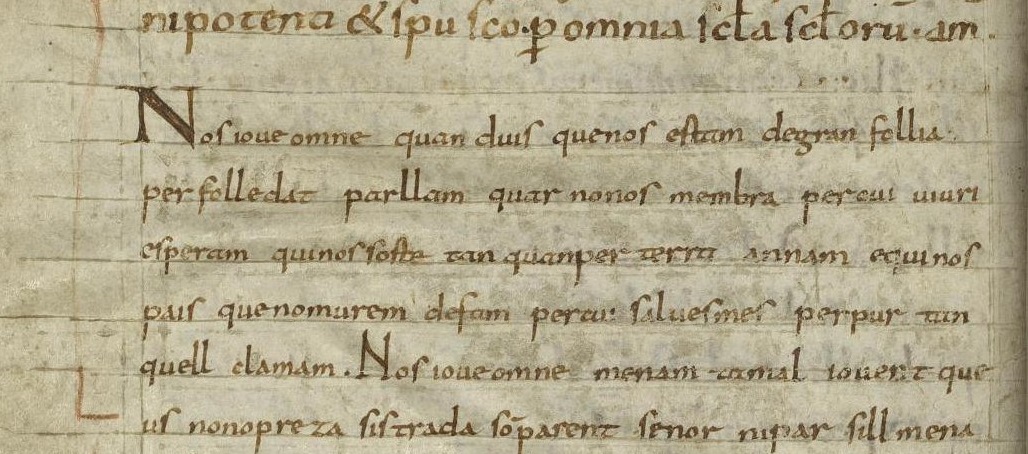 nipotenti & spu sco. p omnia scla scloru. am.
Nos ioue omne quan dius quenos estam degran follia
per folledat parllam quar nonos membra percui uiuri
esperam quinos soste tan quanper terra annam equinos
pais quenomurem defam percui salues mes perpur tan
quell clamam. Nos ioue omne menam tamal iouent que
us nonopreza sistrada so parent senor nipar sill mena